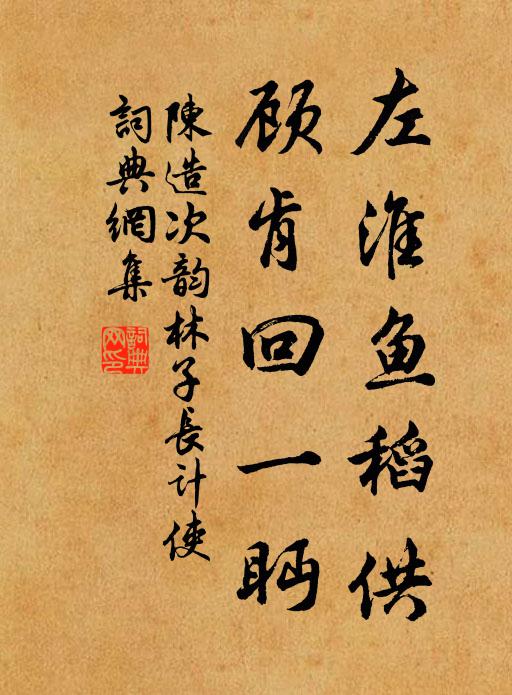 左淮鱼稻供
顾肯回一眄
陳造次韵林子長计使
詞典網集
詞典網印